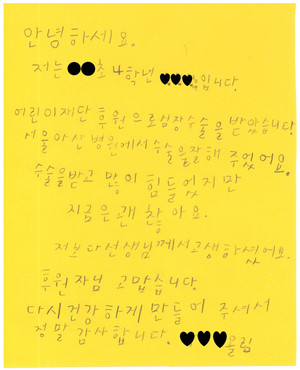 안녕하세요.
저는 ●●초 4학년 ♥♥♥입니다.
어린이재단 후원으로심장수술을 받았습니다.
서울아산병원에서수술을잘해 주었어요.
수술을받고 많이 힘들었지만
지금은괜찮아요.
저보다선생님께서고생하셨어요.
후원자님 고맙습니다.
다시건강하게 만들어 주셔서
정말감사합니다. ♥♥♥올림